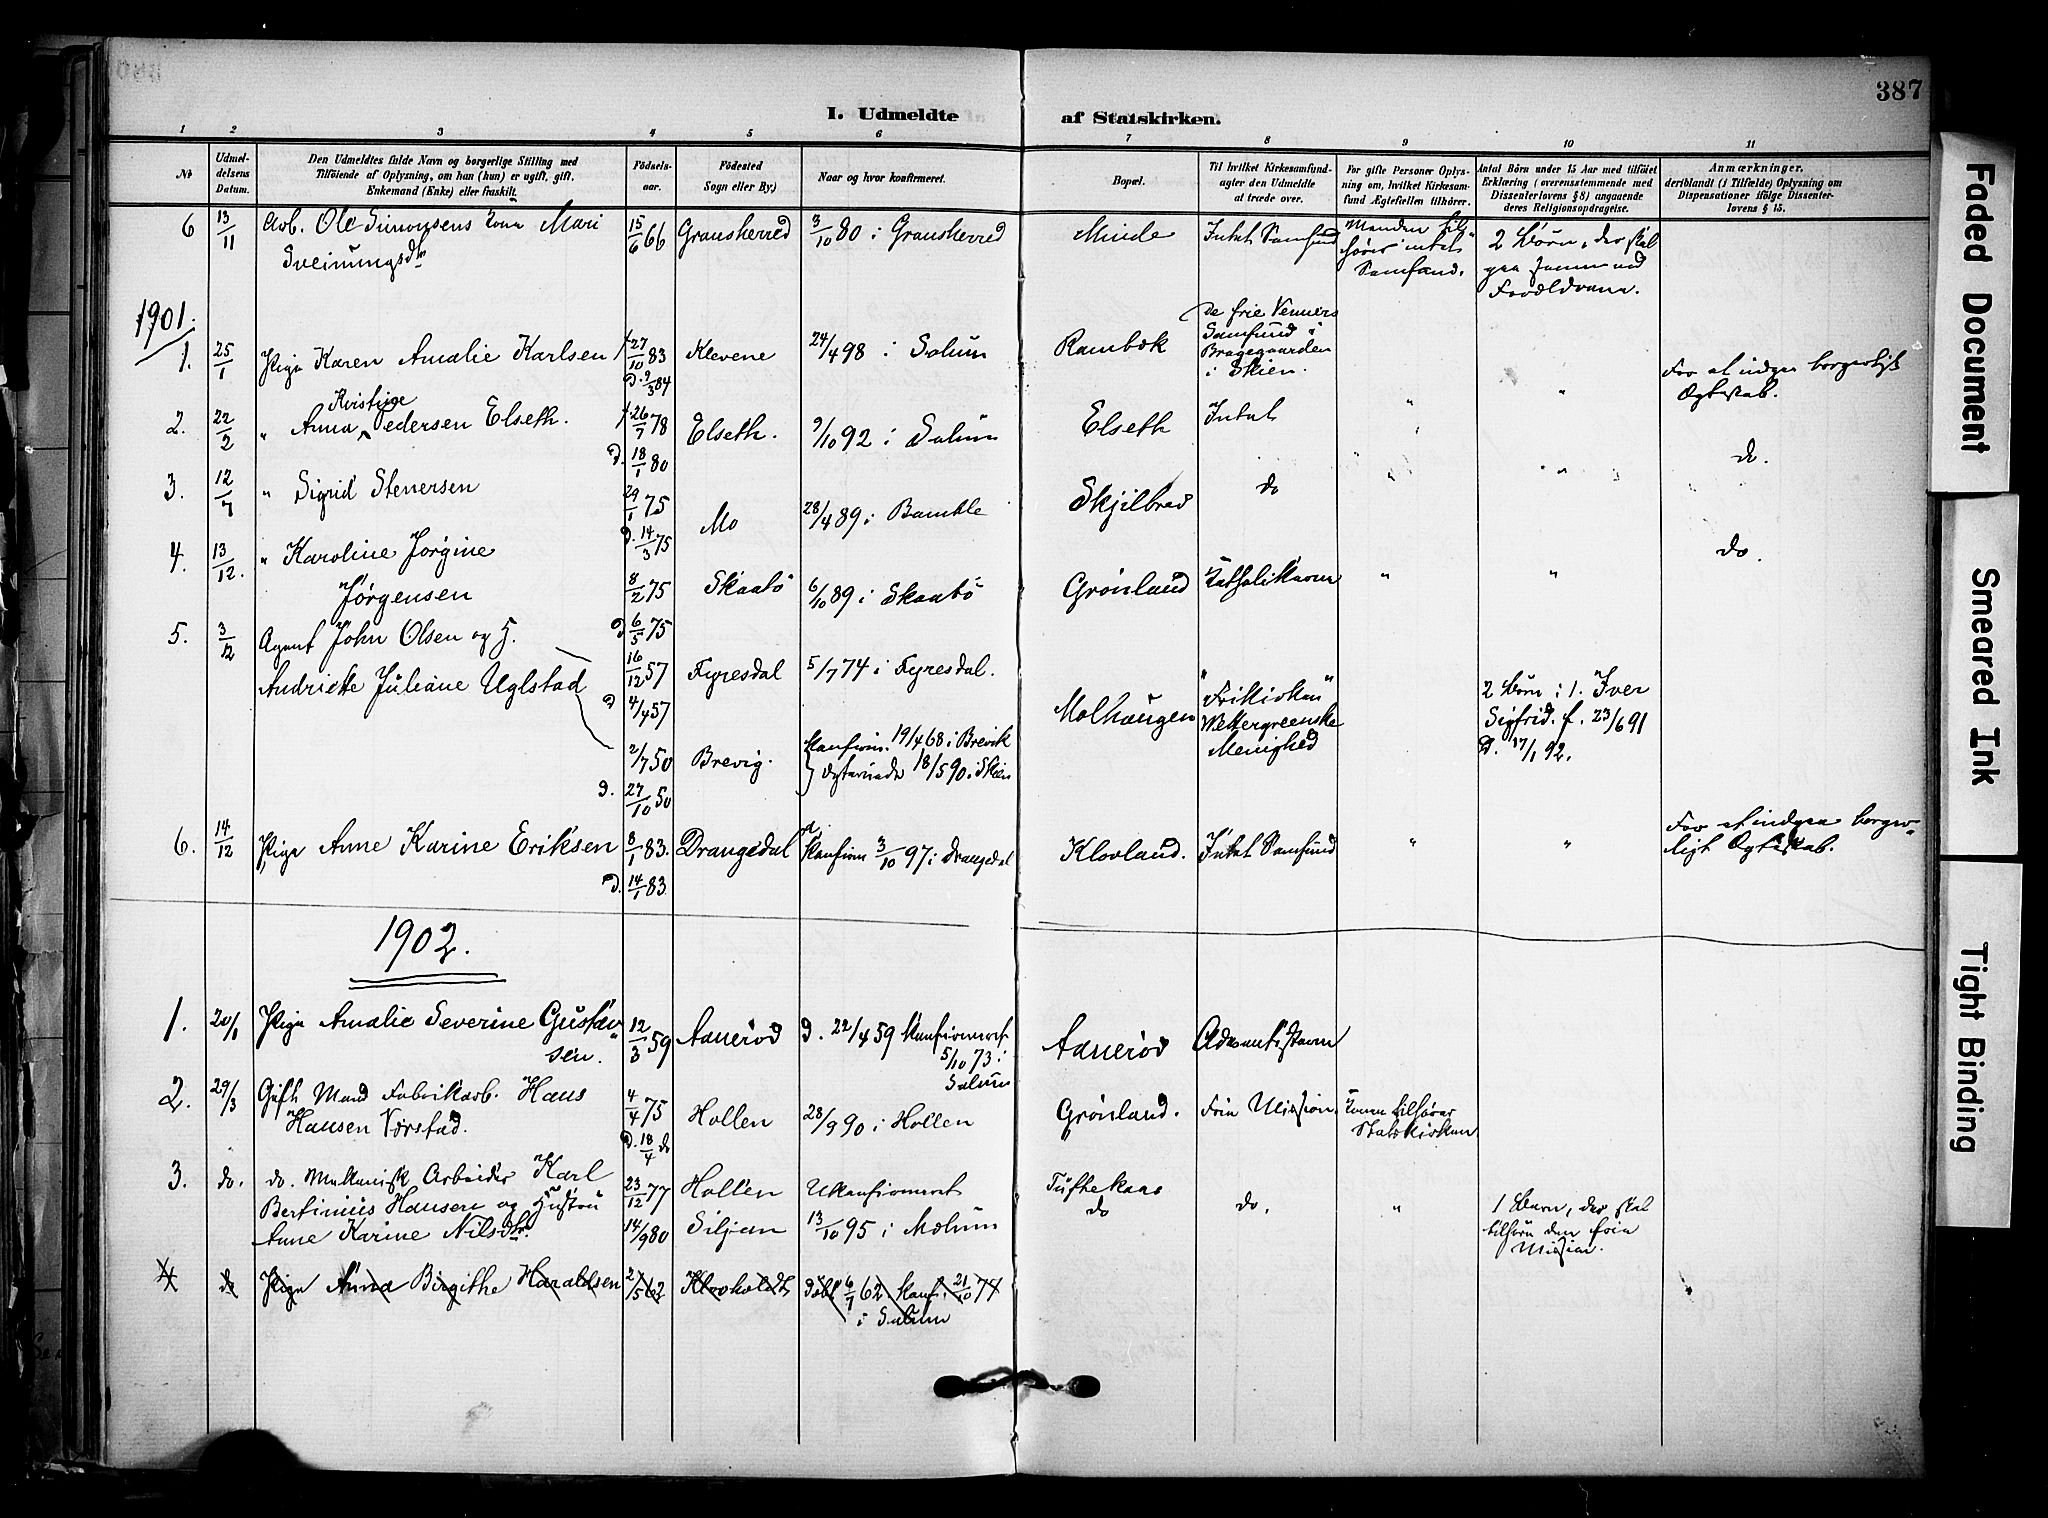 387
I. Udmeldte af Statskirken.
1 2 3 4 5 6 7 8 9 10 11
№
Udmel-
delsens
Datum.
Den Udmeldtes fulde Navn og borgerlige Stilling med
Tilföiende af Oplysning, om han (hun) er ugift, gift,
Enkemand (Enke) eller fraskilt.
Födsels-
aar.
Födested
Sogn eller By.)
Naar og hvor konfirmeret.
Bopæl.
Til hvilket Kirkesamfund-
agter den Udmeldte
at træde over.
For gifte Personer Oplys-
ning om, hvilket Kirkesam-
fund Ægtefællen tilhörer.
Antal Börn under 15 Aar med tilföiet
Erklæring (overensstemmende med
Dissenterlovens § 8) angaaende
deres Religionsopdragelse.
Anmærkninger.
deriblandt (i Tilfælde) Oplysning om
Dispensationer ifölge Dissenter-
lovens § 15.
6 13/11 Arb. Ole Simonsens Kone Mari
Sveinungsdtr
15/6 66 Gransherred 3/10 80 i Gransherred
Minde Intet Samfund
Manden til-
hører intet
Samfund.
2 Børn, der skal
gaa sammen med
Forældrene.
1901.
1. 25/1 Pige Karen Amalie Karlsen f 27/10 83
D. 9/3 84
Klevene 24/4 98 i Solum Rambæk
De frie Venners
Samfund i
Bragegaarden
i Skien.
"
For at indgaa borgerligt
Ægteskab.
2. 22/2 " Anna Kristine Pedersen Elseth. f. 26/7 78
D. 18/1 80
Elseth. 9/10 92 i Solum Elseth Intet " do.
3. 12/7 " Sigrid Stenersen 29/1 75
D. 14/3 75
Mo 28/4 89 i Bamble Skjilbred do " " do.
4. 13/12. " Karoline Jørgine
Jørgensen
8/2 75
D 6/5 75
Skaatö 6/10 89 i Skaatö Grönland Katholikerne " "
5. 3/12 Agent John Olsen og H.
Andriette Juliane Uglstad
16/12 57
D 4/4 57
Fyresdal 5/7 74 i Fyresdal.
2/7 50
D. 27/10 50
Brevig.
Konfirm. 19/4 68 i Brevik
Ægteviede 18/5 90 i Skien
Molhaugen
"Frikirken"
Wettergreenske
Menighed
2 Børn: 1. Iver
Sigfrid. f. 23/6 91
D. 17/1 92.
6. 14/12 Pige Anne Karine Eriksen 8/1 83.
D. 14/1 83
Drangedal Konfirm 3/10 97 i Drangedal
Klovland. Intet Samfund " "
For at indgaa borger-
ligt Ægteskab.
1902.
1. 20/1 Pige Amalie Severine Gustav
sen.
12/3 59 Aaneröd D. 22/4 59 Konfirmeret
5/10 73 i
Solum
Aaneröd Adventisterne
2. 29/3 Gift Mand Fabrikarb. Hans
Hansen Vorstad.
4/4 75
D. 18/4 do
Hollen 28/9 90 i Hollen Grönland. Frie Mission.
Konen tilhører
Statskirken
3. do. do. Mekanisk Arbeider Karl
Bertinius Hansen og Hustru
Anne Karine Nilsdtr.
23/12 77 Hollen Ukonfirmeret
14/9 80 Siljan 13/10 95 i Melum
Tuftekaas
do
do. "
1 Barn, der skal
tilhøre den frie
Mission.
4 do Pige Anna Birgithe Haraldsen 2/5 62 Klovholdt Döbt 6/7 62 Konf. 21/10 77
i Solum
Faded Document
Smeared Ink
Tight Binding